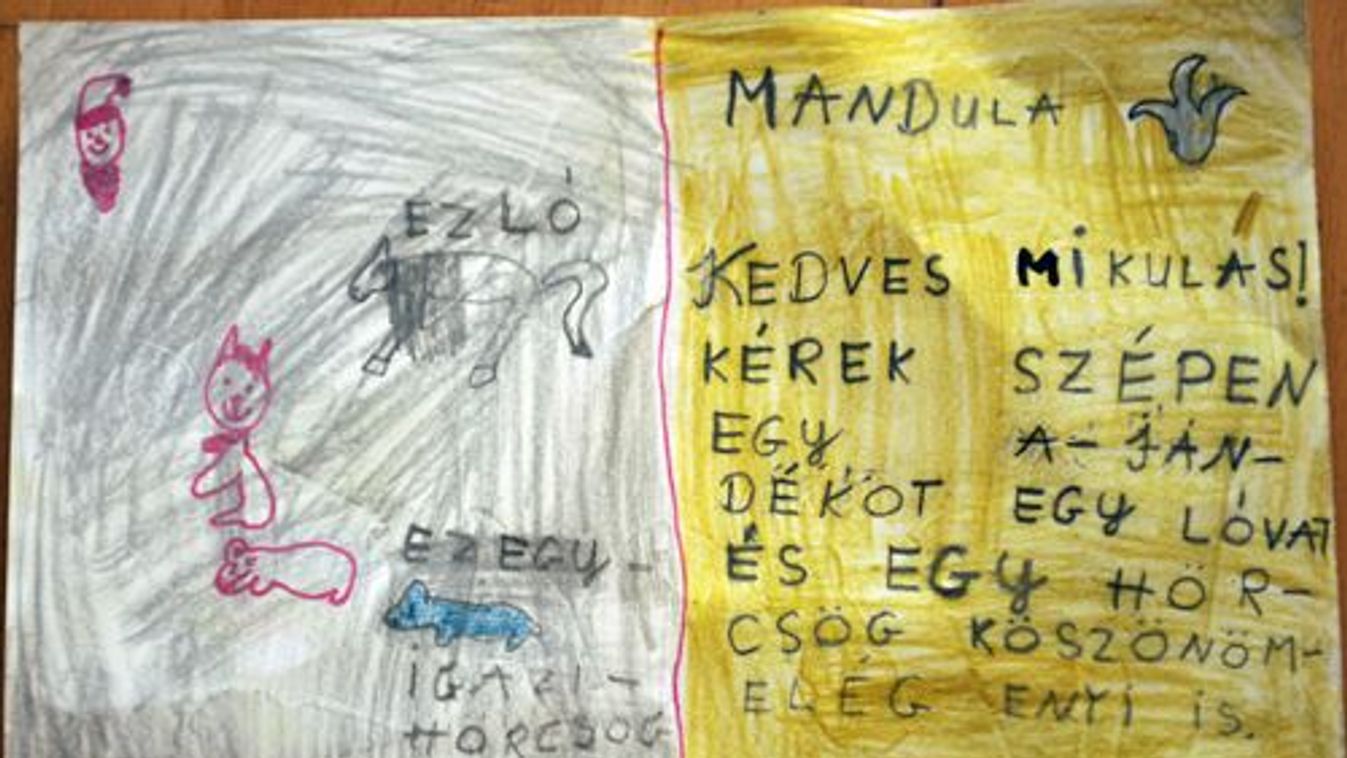 EZ LÓ
EZ EGY-
IGAZI-
HÖRCSÖG
MANDULA
KEDVES MIKULÁS!
KÉREK SZÉPEN
EGY A-JÁN-
DÉKOT EGY LÓVAT
ÉS EGY HÖR-
CSÖG KÖSZÖNÖM-
ELÉG ENYI IS.